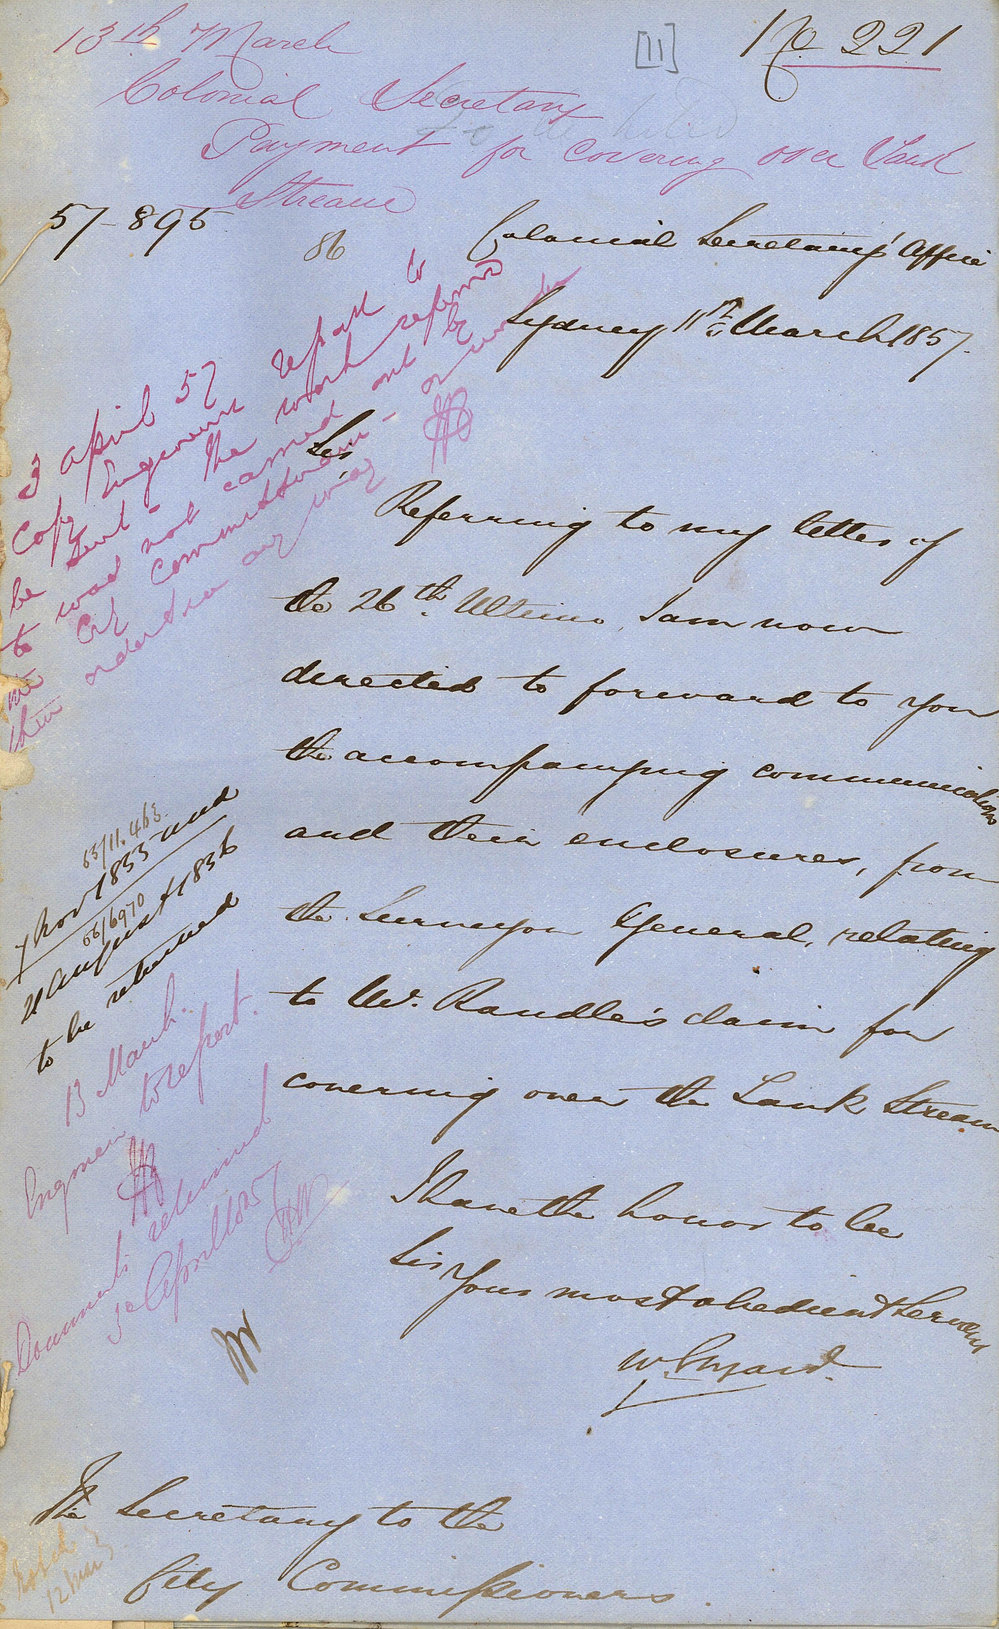 13th March
[11]
No 221
Colonial Secretary
Payment for covering over Tank
Stream
57-895
86
Colonial Secretary's Office
Sydney 11th March 1857.
3 April 57 report
Copy Engineers
be sent - the work referred
to was not carried out by
the City Commissioners - or
them ordered in any way
Sir,
Referring to my letter of
the 26th Ultimo, I am now
directed to forward to you
the accompanying communications
and their enclosures, from
the Surveyor General, relating
to Mr. Randle's claim for
covering over the Tank Stream
55/11.463
7 Nov 1855 and
56/6970
21 August 1856
to be returned
13 March.
Engineer to report.
Documents returned
3d April 1857
I have the honor to be
Sir
Your most obedient Servant
The Secretary to the
City Commissioners.
12 Mar